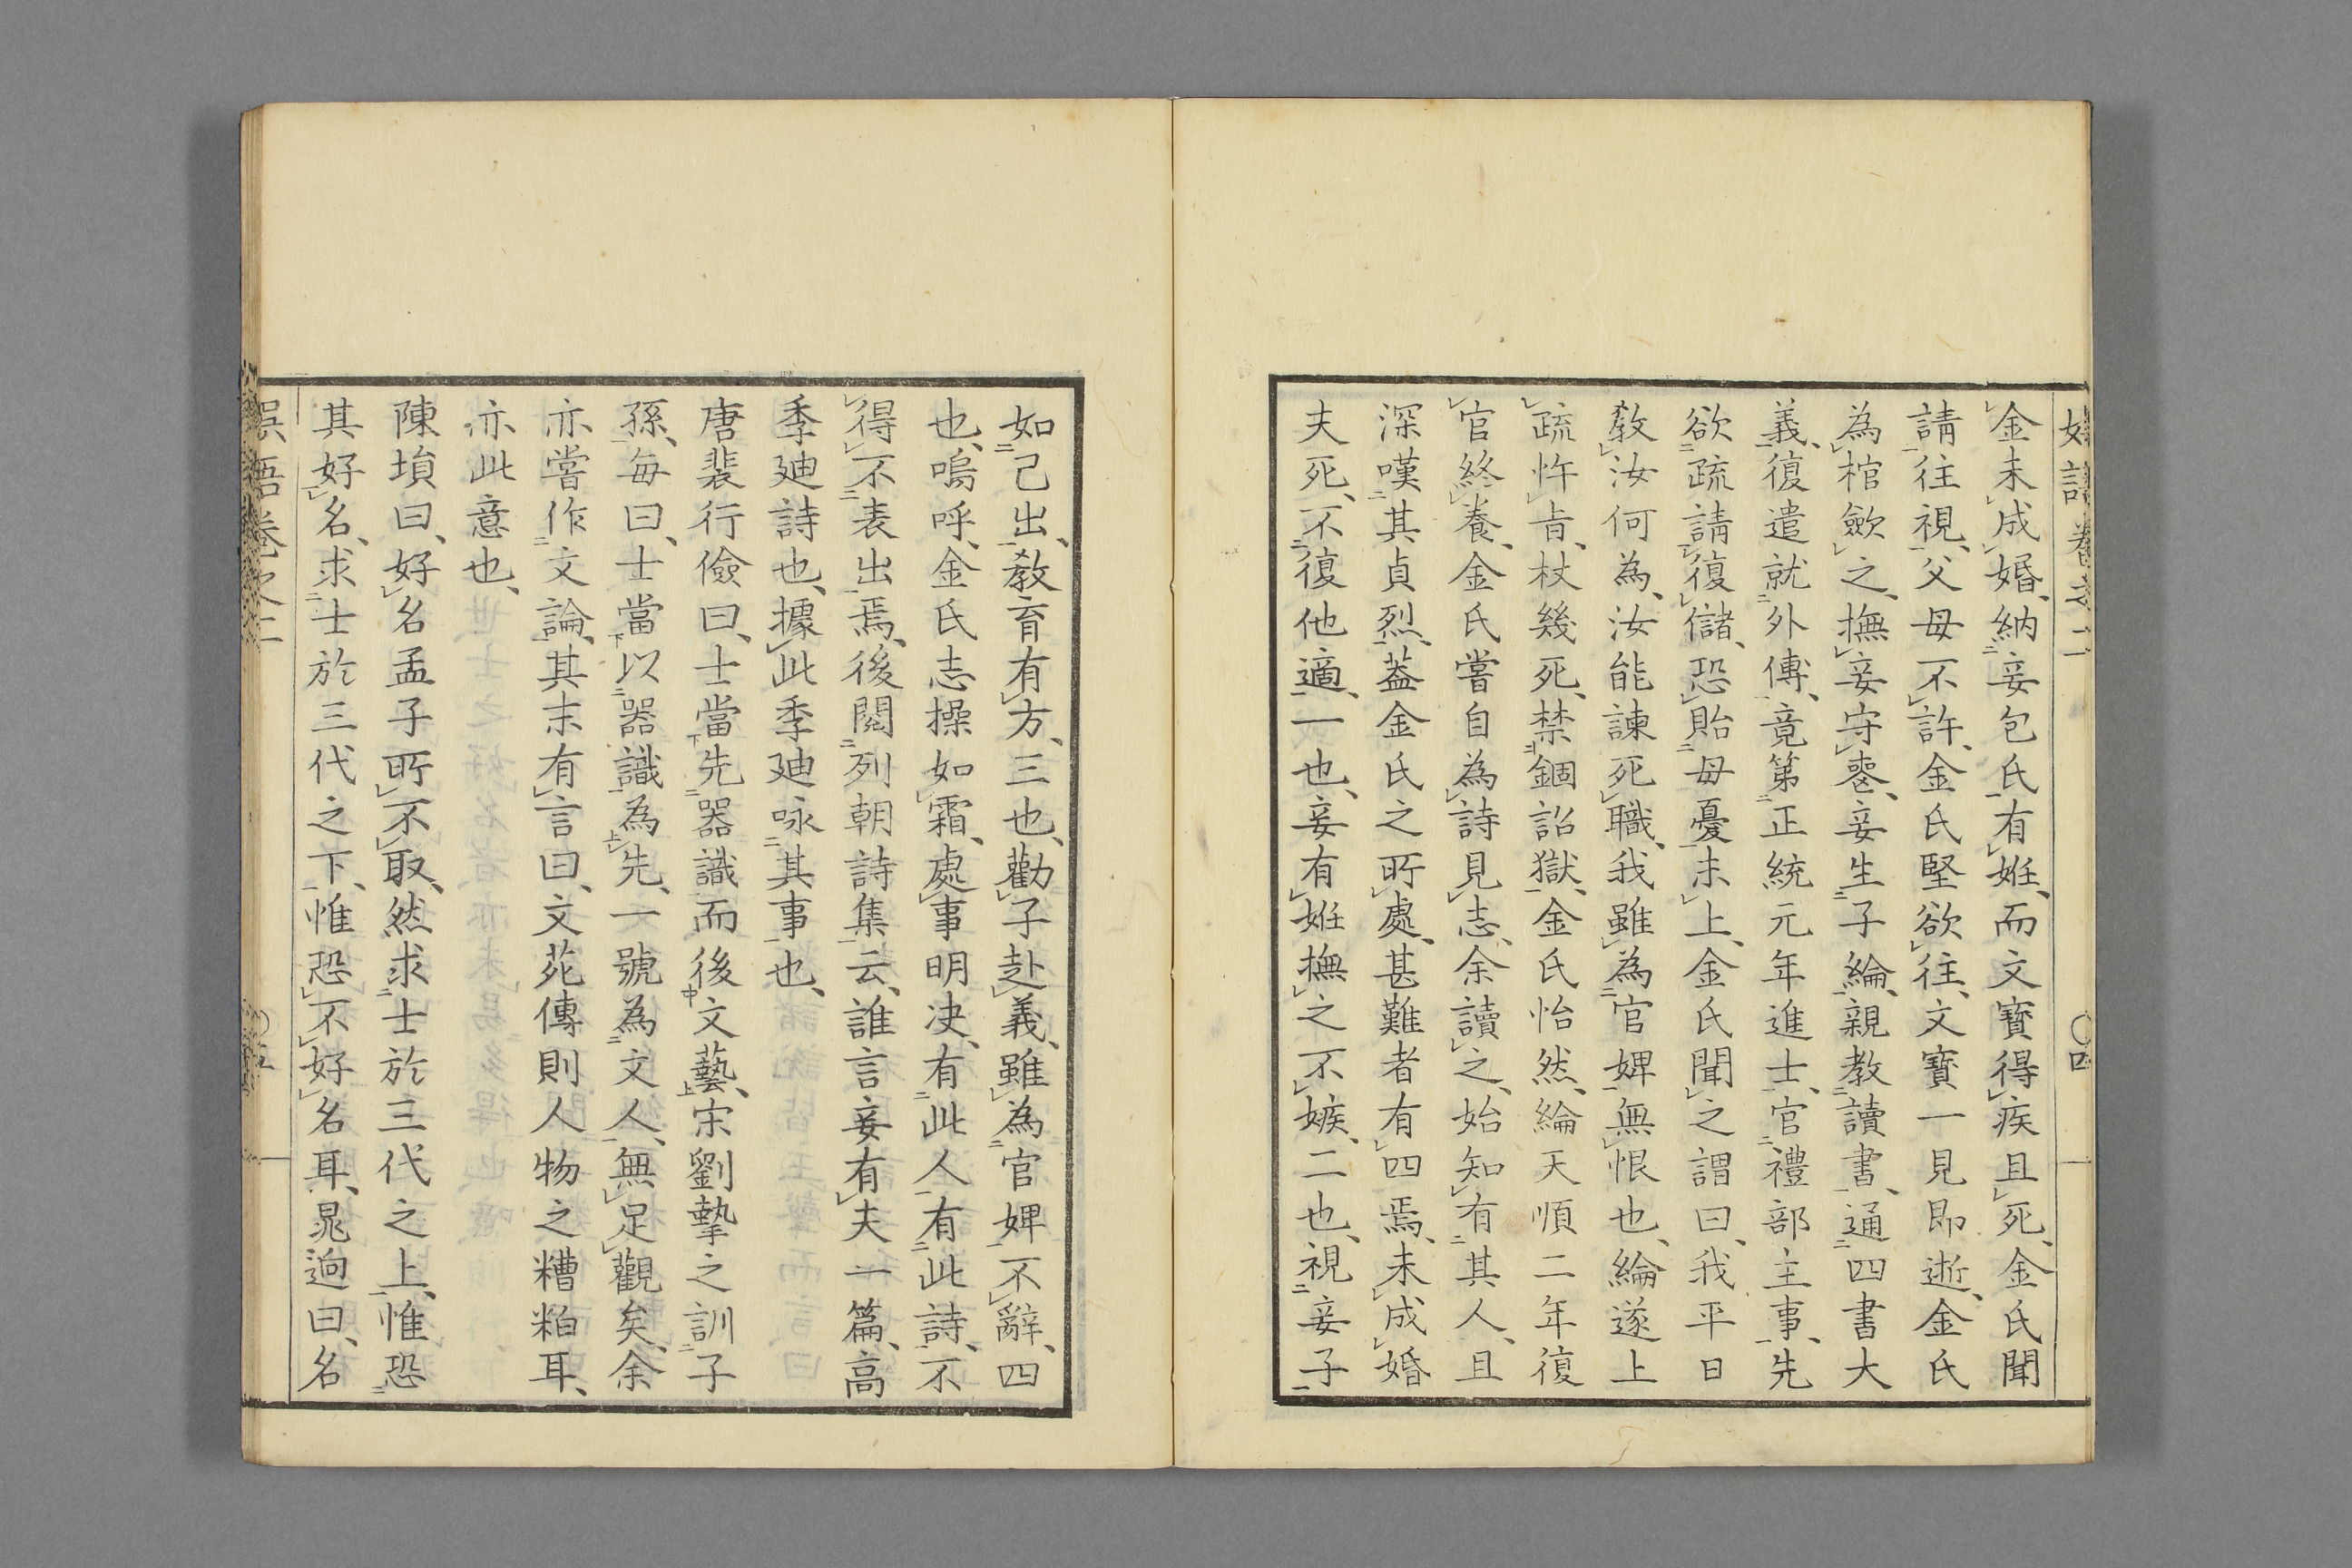 金未成婚、納妾包氏有姙、而文寳得疾且死、金氏聞
請往視、父母不許、金氏堅欲往、文寳一見即逝、金氏
為棺歛之、撫妾守䘮、妾生子綸、親教讀書、通四書大
義、復遣就外傅、竟第正統元年進士、官禮部主事、先
欲疏請復儲、恐貽母憂、未上、金氏聞之謂曰、我平日
教汝何為、汝能諫死職、我雖為官婢無恨也、綸遂上
疏忤㫖、杖幾死、禁錮詔獄、金氏怡然、綸天順二年復
官終養、金氏嘗自為詩見志、余讀之、始知有其人、且
深嘆其貞烈、葢金氏之所處、甚難者有四焉、未成婚
夫死、不復他適、一也、妾有姙撫之不嫉、二也、視妾子
如己出、教育有方、三也、勸子赴義、雖為官婢不辭、四
也、嗚呼、金氏志操如霜、處事明决、有此人有此詩、不
得不表出焉、後閲列朝詩集云、誰言妾有夫一篇、高
季廸詩也、據此季廸咏其事也、
唐裴行儉曰、士當先器識而後文藝、宋劉摯之訓子
孫、毎曰、士當以器識為先、一號為文人、無足觀矣、余
亦嘗作文論、其末有言曰、文苑傳則人物之糟粕耳、
亦此意也、
陳塤曰、好名孟子所不取、然求士於三代之上、惟恐
其好名、求士於三代之下、惟恐不好名耳、晁迥曰、名